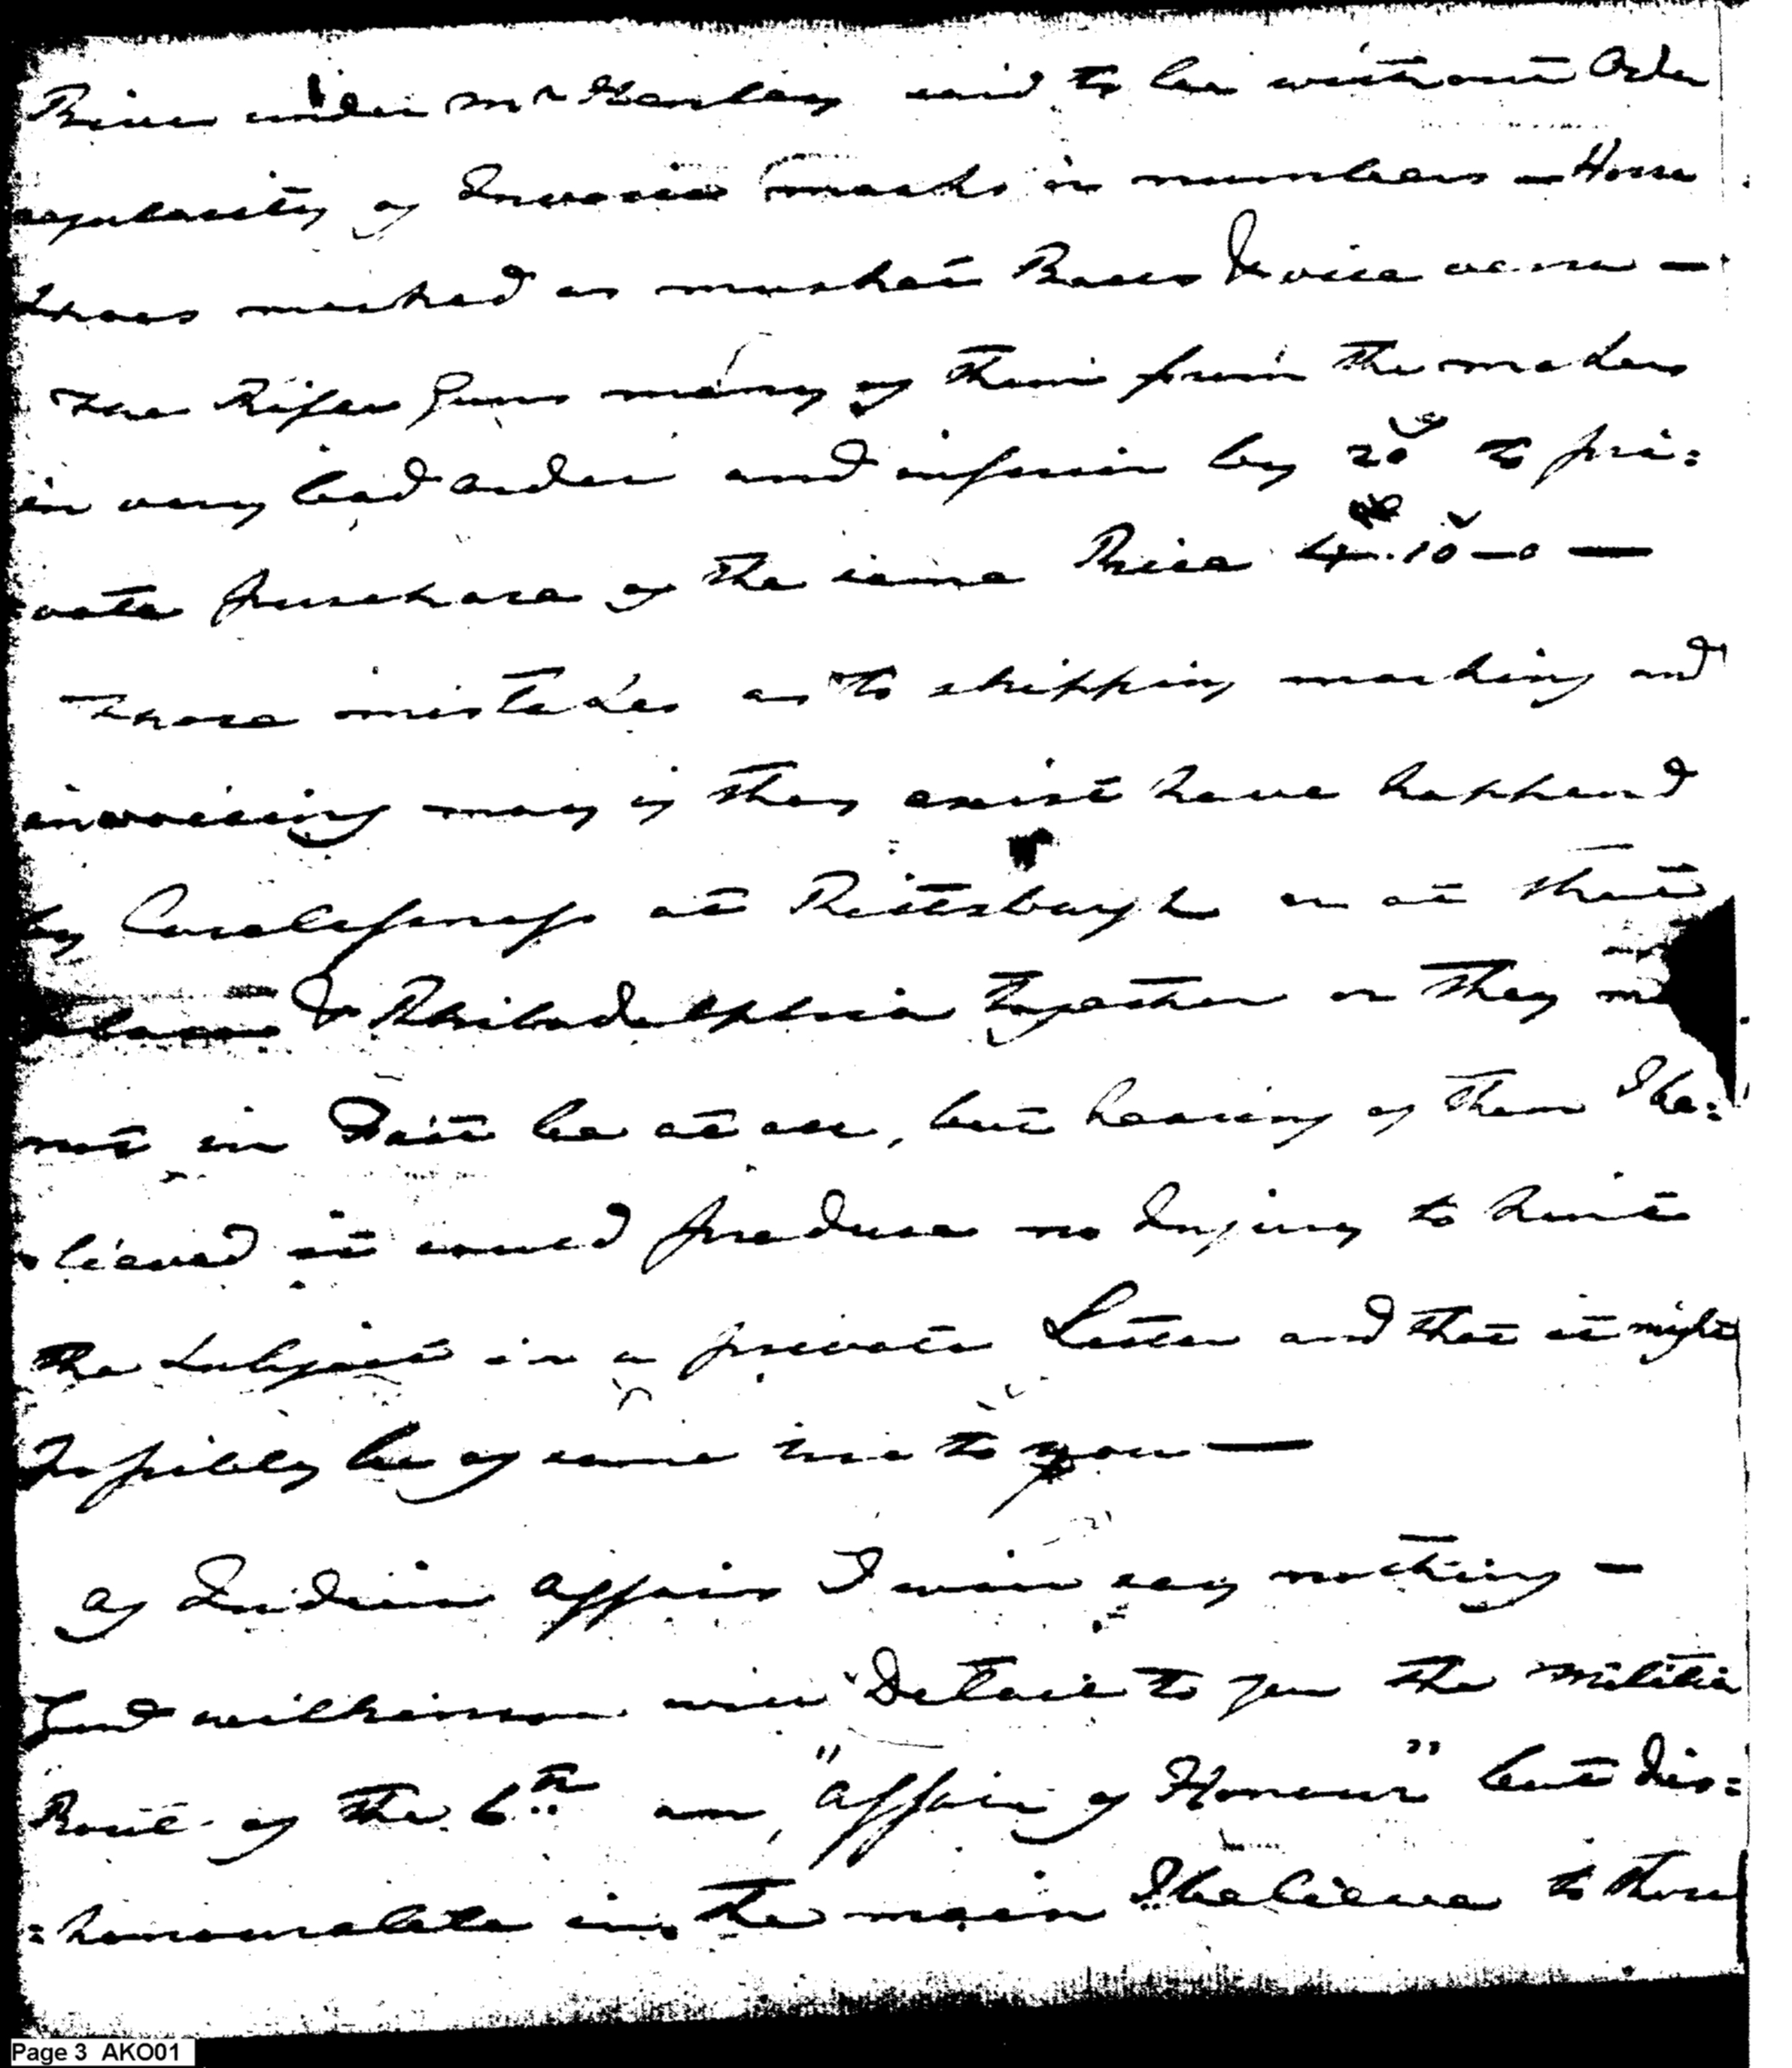 River under Mr Henley said to be without Order
regularity of Invoice marks or numbers — Horse
Shoes marked as musket Balls & vice versa —
The Rifle Guns many of them from the makers
in very bad order and inferior by 20 to pri:
vate purchase of the same Price 10–0 —
Those mistakes as to shipping marking and
invoicing may if they exist have happend
by Carelessness at Pittsburgh or at that
place & Philadelphia together or they
not in Fact be at all, but hearing of them I be:
lieved it could produce no Injury to hint
the subject in a private Letter and that it might
Possibly be of some use to you —
Of Indian Affairs I will say nothing —
Genl Wilkinson will Detail to you the Militia
Rout of the 6th an "Affair of Honour" but dis:
:honourable in the main I believe to those
Page 3 AKO01